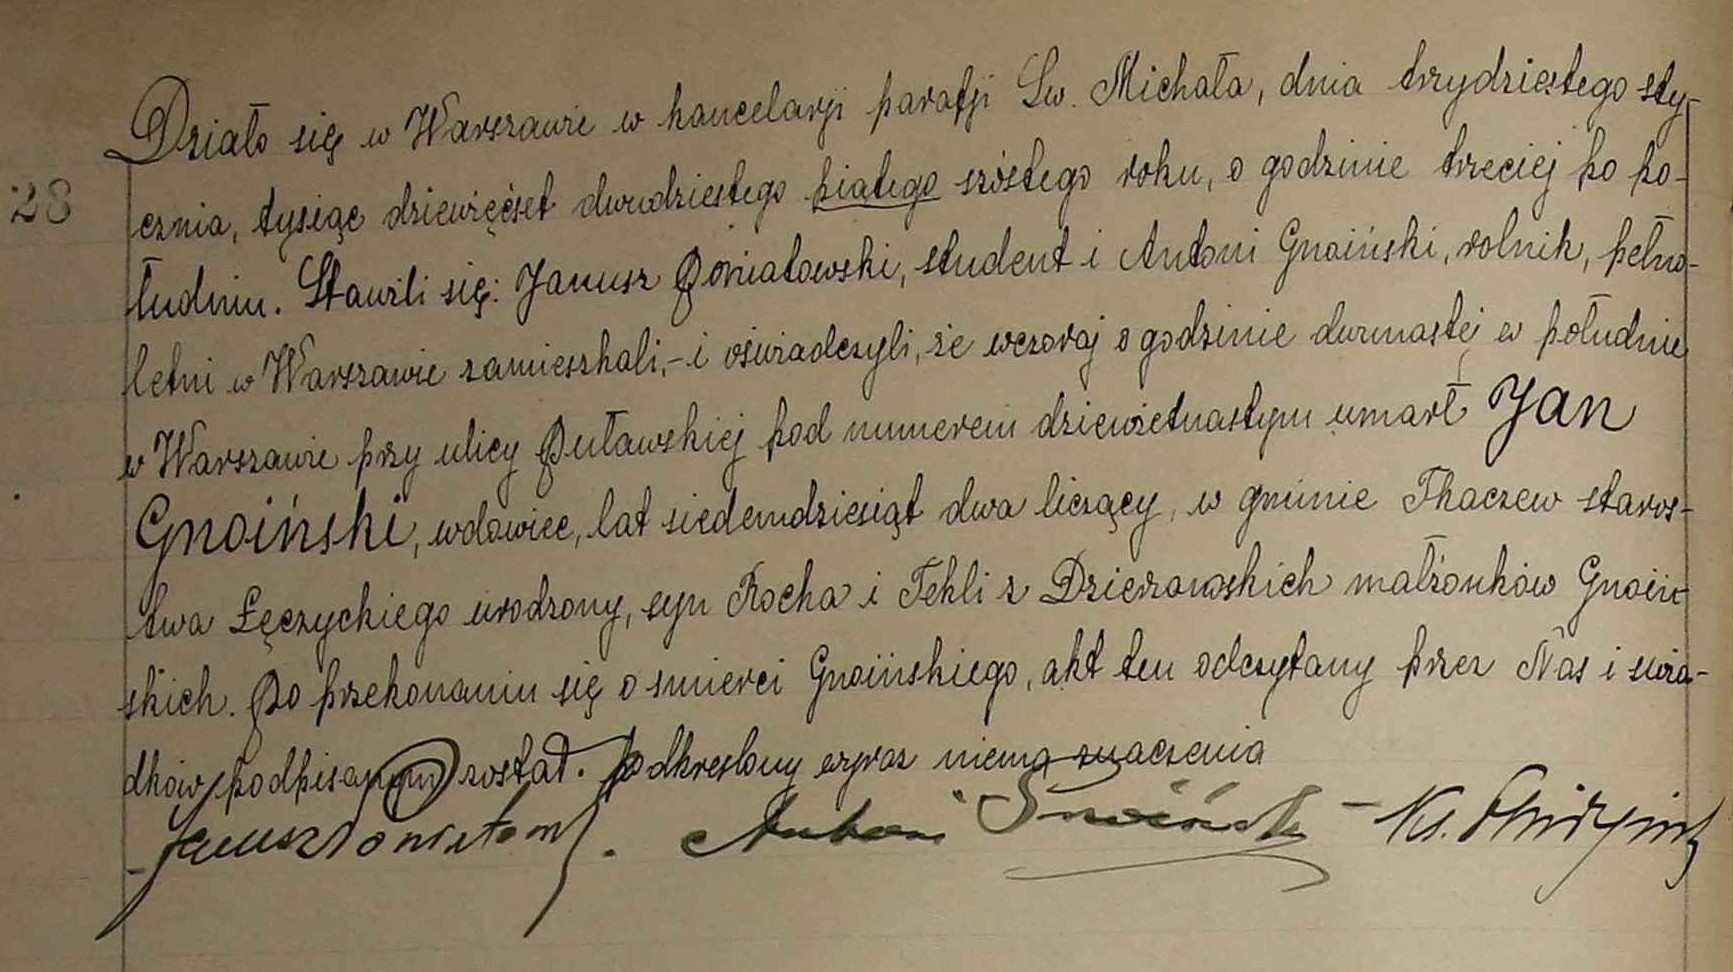 Działo się w Warszawie w kancelarji parafji Św. Michała, dnia trzydziestego sty-
28
cznia, tysiąc dziewięćset dwudziestego piątego szóstego roku, o godzinie trzeciej po po-
łudniu. Stawili się: Janusz Poniatowski, student i Antoni Gnoiński, rolnik, pełno-
letni w Warszawie zamieszkali, - i oświadczyli, że wczoraj o godzinie dwunastej w południe
w Warszawie przy ulicy Puławskiej pod numerem dziewiętnastym umarł Jan
Gnoiński, wdowiec, lat siedemdziesiąt dwa liczący, w gminie Tkaczew staros-
twa Łęczyckiego urodzony, syn Rocha i Tekli z Dzierzawskich małżonków Gnoiń-
skich. Po przekonaniu się o śmierci Gnoińskiego, akt ten odczytany przez Nas i świa-
dków podpisanym został. Podkreślony wyraz niema znaczenia
Janusz Poniatowski. Antoni Gnoiński - Ks.